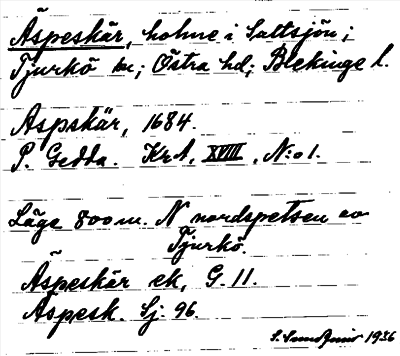 Äspeskär, holme i Saltsjön;
Tjurkö sn; Östra hd; Blekinge l.
Äspskär, 1684.
P. Gedda. KrA, XVIII, N:o 1.
Läge 800 m. N nordspetsen av
Tjurkö.
Äspeskär ek, G. 11.
Äspesk. Sj. 96.
1936